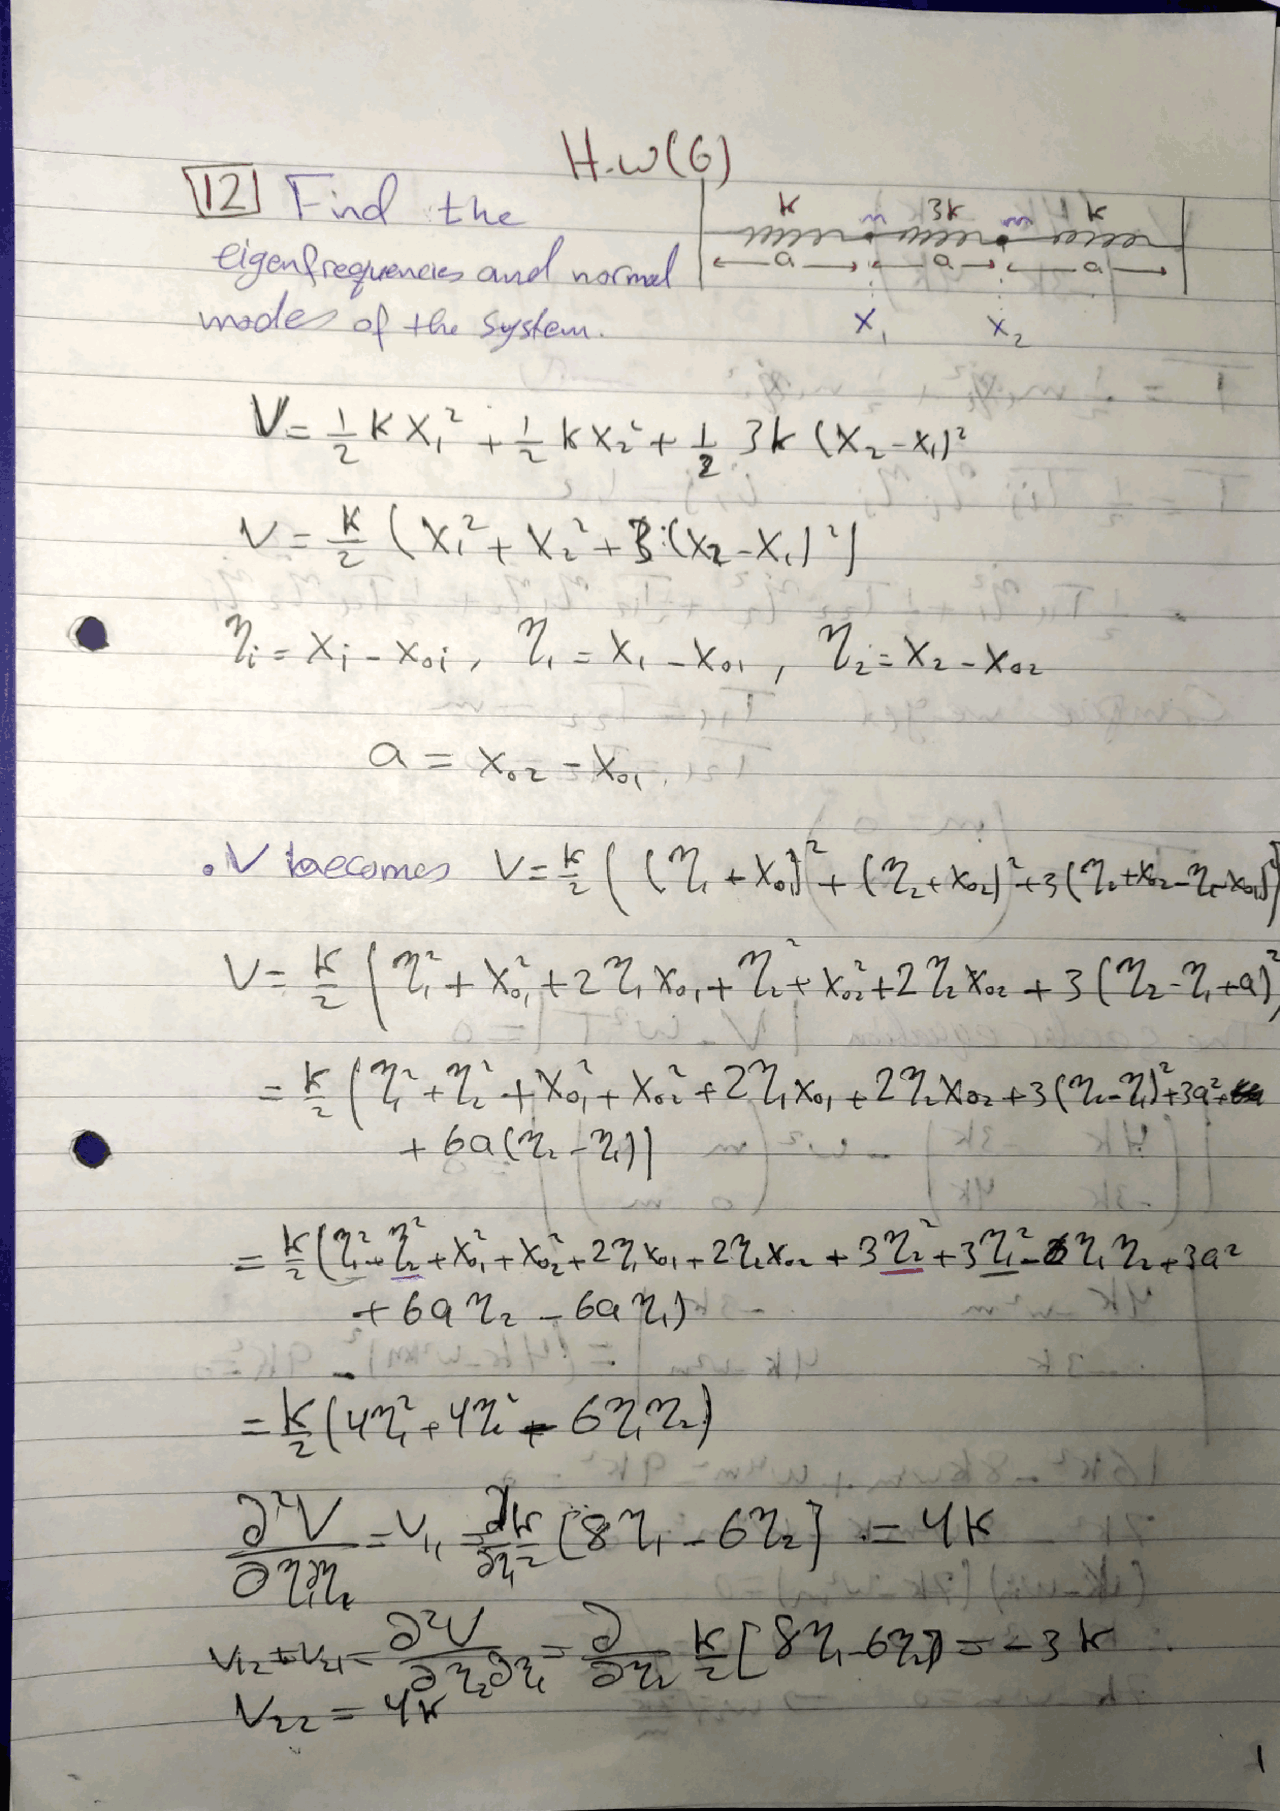 H.W(6)
12 Find the
eigenfrequencies and normal
modes of the system.
K m 3K m K
a a a
x₁ x₂
V = 1/2 K x₁² + 1/2 K x₂² + 1/2 3K (x₂ - x₁)²
V = K/2 (x₁² + x₂² + 3(x₂ - x₁)²)
η_i = x_i - x₀i, η₁ = x₁ - x₀₁, η₂ = x₂ - x₀₂
a = x₀₂ - x₀₁
. V becomes V = K/2 ((η₁ + x₀₁)² + (η₂ + x₀₂)² + 3(η₂ + x₀₂ - η₁ - x₀₁)²)
V = K/2 (η₁² + x₀₁² + 2η₁x₀₁ + η₂² + x₀₂² + 2η₂x₀₂ + 3(η₂ - η₁ + a)²
= K/2 (η₁² + η₂² + x₀₁² + x₀₂² + 2η₁x₀₁ + 2η₂x₀₂ + 3(η₂ - η₁)² + 3a²
+ 6a(η₂ - η₁))
= K/2 (η₁² + η₂² + x₀₁² + x₀₂² + 2η₁x₀₁ + 2η₂x₀₂ + 3η₂² + 3η₁² - 6η₁η₂ + 3a²
+ 6aη₂ - 6aη₁)
= K/2 (4η₁² + 4η₂² - 6η₁η₂)
∂²V/∂η₁∂η₂ = V₁₁ = ∂/∂η₁ K/2 [8η₁ - 6η₂] = 4K
V₁₂ = V₂₁ = ∂²V/∂η₂∂η₁ = ∂/∂η₂ K/2 [8η₁ - 6η₂] = -3K
V₂₂ = 4K
1